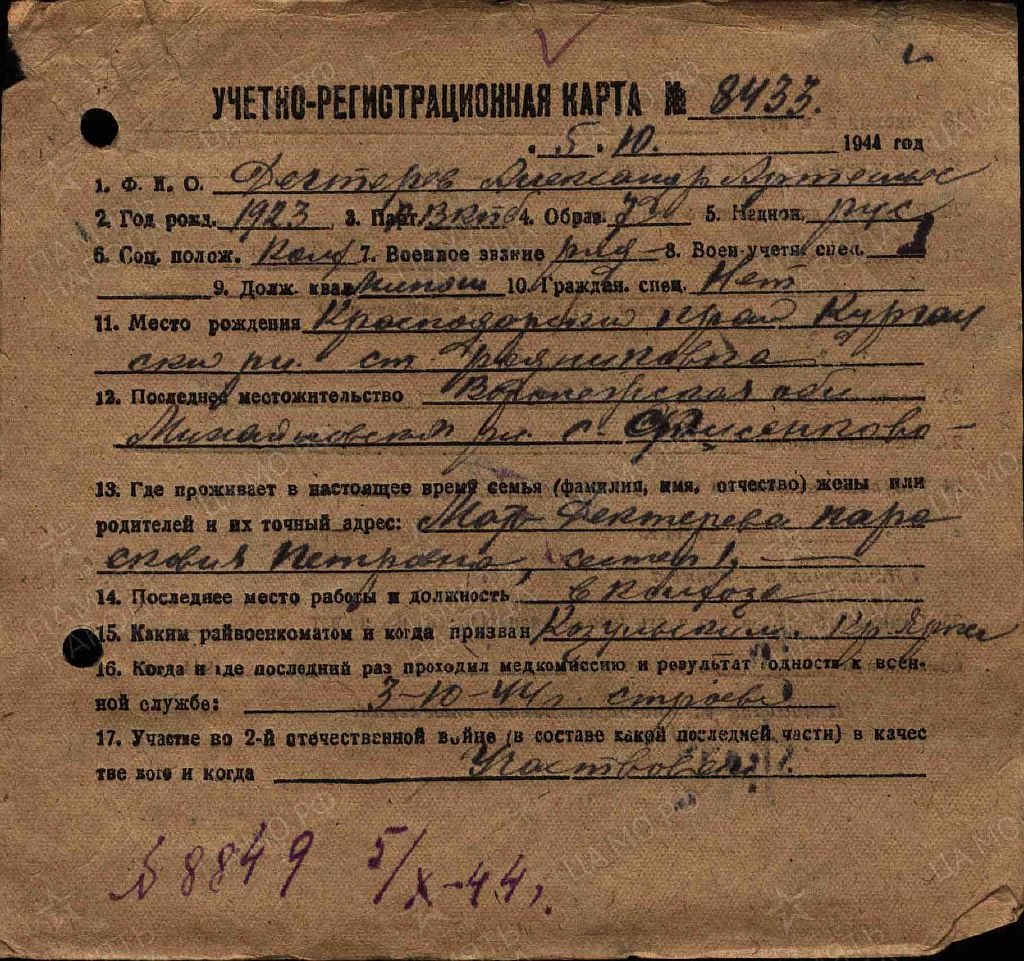 УЧЕТНО-РЕГИСТРАЦИОННАЯ КАРТА № 8433.
5.10. 1944 год
1. Ф. И. О. Дехтерев Александр Артемьев
2. Год рожд. 1923 3. Парт. ВКПб 4. Образ. 7 5. Национ. рус
6. Соц. полож. Колх 7. Военное звание ряд 8. Воен-учетн. спец.
9. Долж. квал. 10. Граждан. спец. Нет
11. Место рождения Краснодарский край Курган
ский рн. ст.
12. Последнее местожительство Воронежская обл
Михайловский рн. с.
13. Где проживает в настоящее время семья (фамилия, имя, отчество) жены или
родителей и их точный адрес: Мать Дехтерева Пара
сковия Петровна, сестер 1,
14. Последнее место работы и должность в колхозе
15. Каким райвоенкоматом и когда призван Козульским. Кр Ярск
16. Когда и где последний раз проходил медкомиссию и результат годности к воен-
ной службе: 3-10-44г. строев
17. Участие во 2-й отечественной войне (в составе какой последней части) в качес
тве кого и когда Участвовал
№ 8849 5/X-44г.